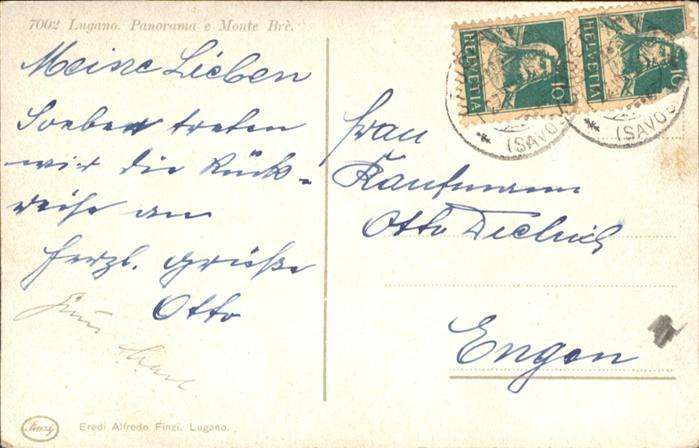 7002 Lugano. Panorama e Monte Brè.
Meine Lieben
Soeben treten
wir die Rück-
reise an
herzl. Grüße
Otto
Frau
Kaufmann
Otto Dietrich
Engen
HELVETIA
10
HELVETIA
10
(SAVOSA)
(SAVOSA)
Finzi
Eredi Alfredo Finzi. Lugano.